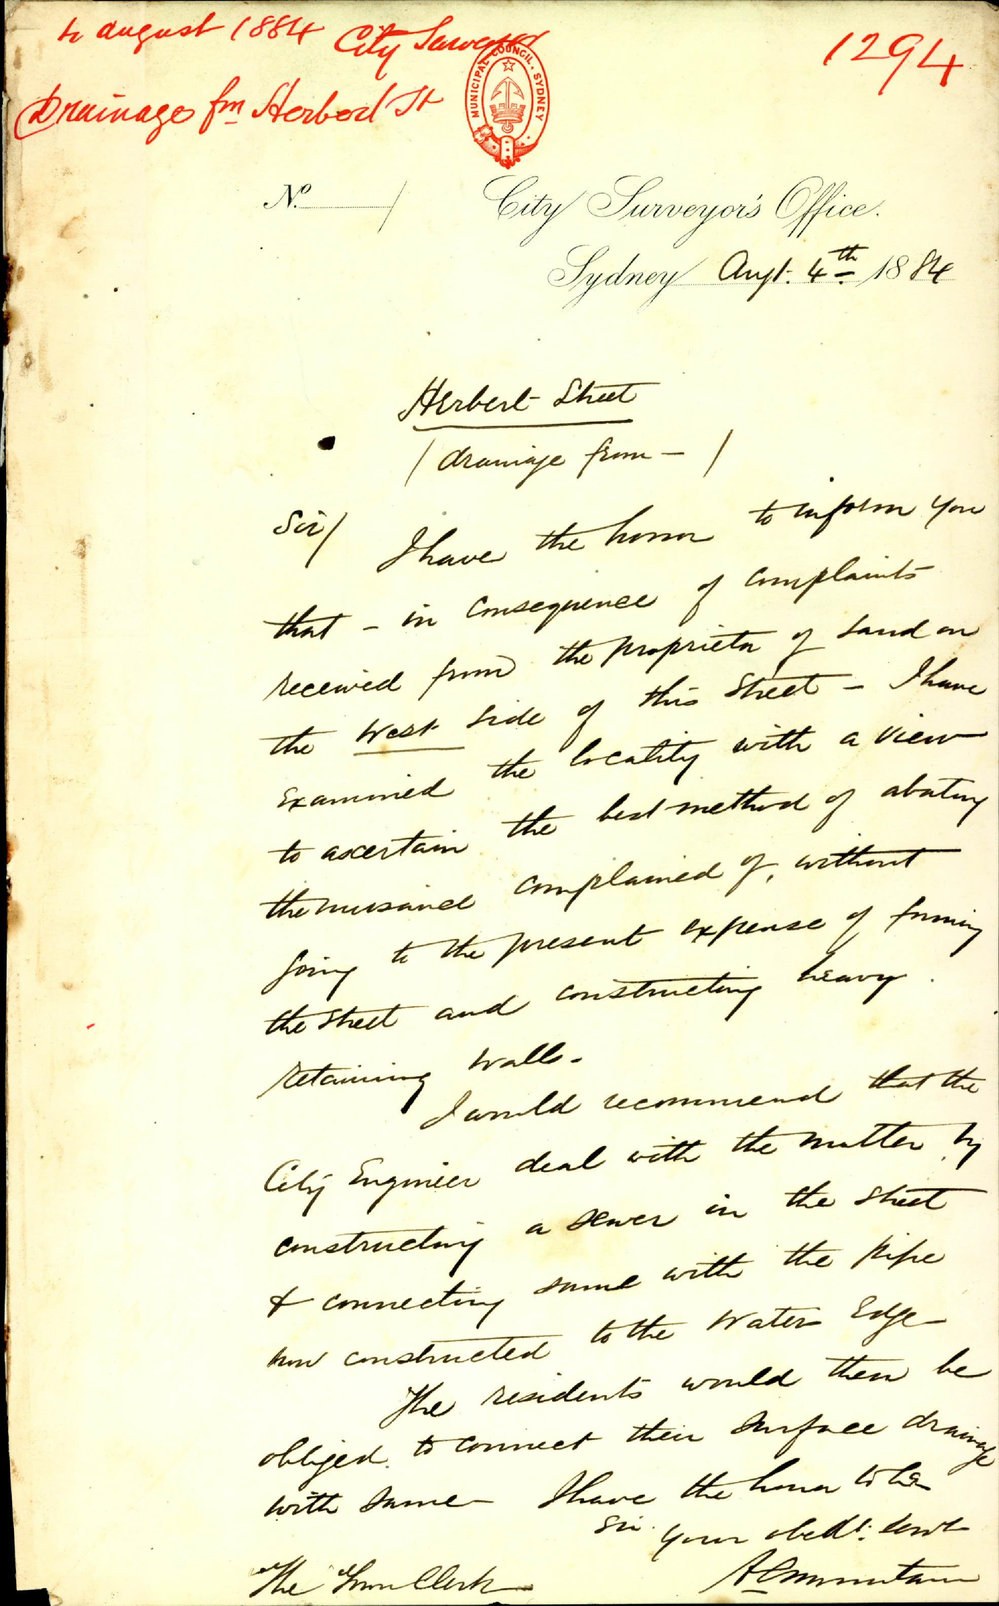 4 august 1884 City Surveyor
1294
Drainage fm Herbert St
MUNICIPAL COUNCIL. SYDNEY
No. /
City Surveyor's Office.
Sydney Augt. 4th 1884
Herbert Street
/ drainage from - /
Sir/ I have the honor to inform you
that - in consequence of complaints
received from the proprietor of land on
the West side of this Street - I have
examined the locality with a view
to ascertain the best method of abating
the nuisance complained of, without
going to the present expense of forming
the Street and constructing heavy
retaining walls -
I would recommend that the
City Engineer deal with the matter by
constructing a sewer in the street
& connecting same with the pipe
now constructed to the Water Edge
The residents would then be
obliged to connect their surface drainage
with same - I have the honor to be
Sir
your obedt. servt
The Town Clerk